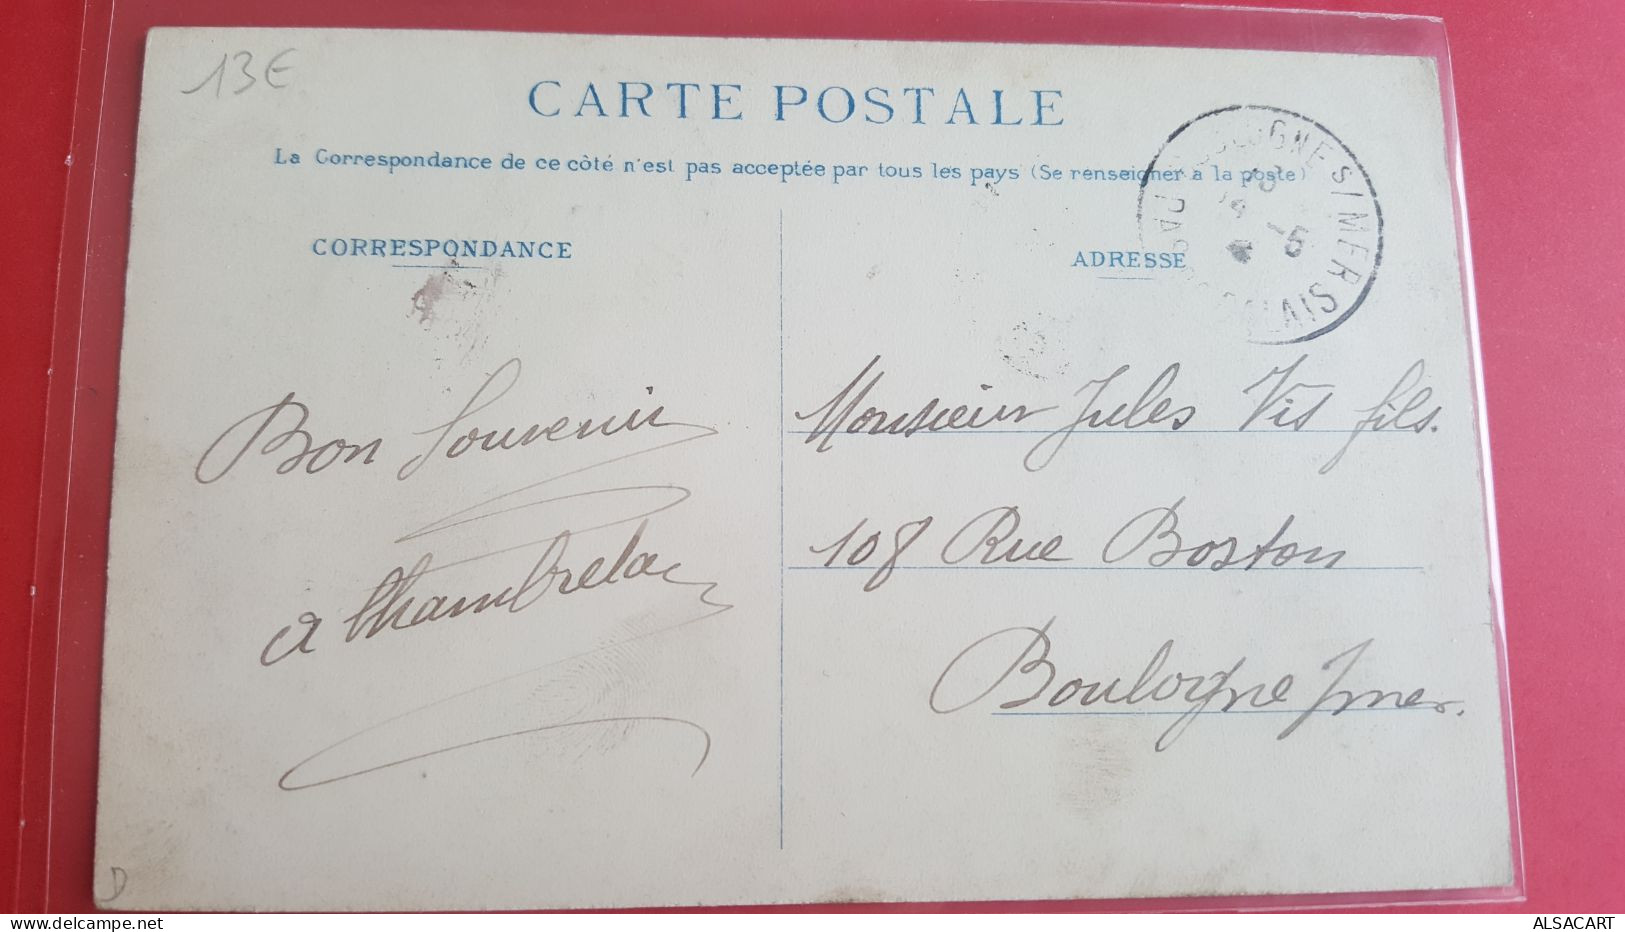 13€
CARTE POSTALE
La Correspondance de ce côté n'est pas acceptée par tous les pays (Se renseigner à la poste)
BOULOGNE S/ MER
PAS CALAIS
4 -5
CORRESPONDANCE
ADRESSE
Bon Souvenir
Monsieur Jules Vis fils.
108 Rue Boston
Boulogne s/mer.
D
ALSACART